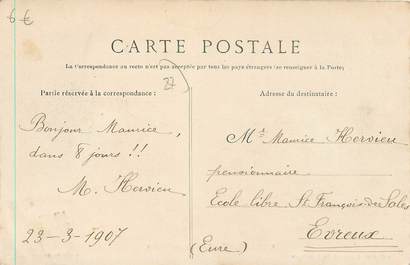 6 €
CARTE POSTALE
La correspondance au recto n'est pas acceptée par tous les pays étrangers (se renseigner à la Poste)
27
Partie réservée à la correspondance :
Adresse du destinataire :
Bonjour Maurice,
dans 8 jours !!
M. Hervieu
23-3-1907
Mr Maurice Hervieu
pensionnaire
Ecole libre St François de Sales
Evreux
(Eure)